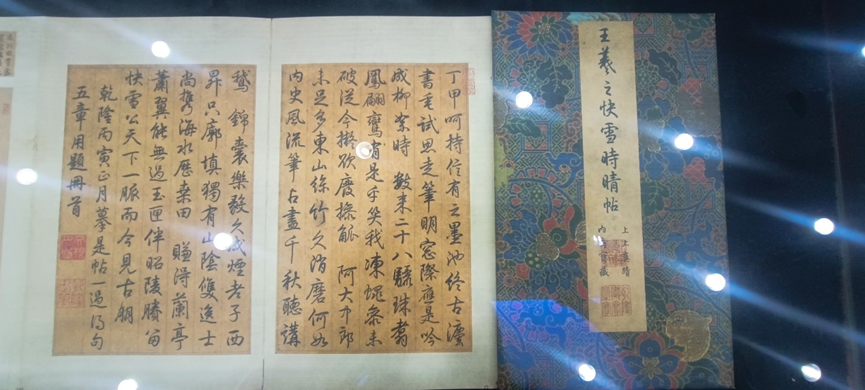 王羲之快雪時晴帖
上上真蹟
內府寶藏
丁甲呵持信有之墨池終古
試思走筆明窗際應是吟
成柳絮時 數來二十八驪珠翥
鳳翩鸞有是乎笑我凍蠅參未
破從今擬欲廢操觚 阿大中郎
未足多東山絲竹久消磨何如
內史風流筆占盡千秋聽講
鵝 錦囊樂毅久成煙老子西
昇只廓填獨有山陰雙逸士
尚攜海水歷桑田 賺得蘭亭
蕭翼能無過玉匣伴昭陵勝留
快雪公天下一脈而今見古朋
乾隆丙寅正月摹是帖一過得句
五章用題冊首